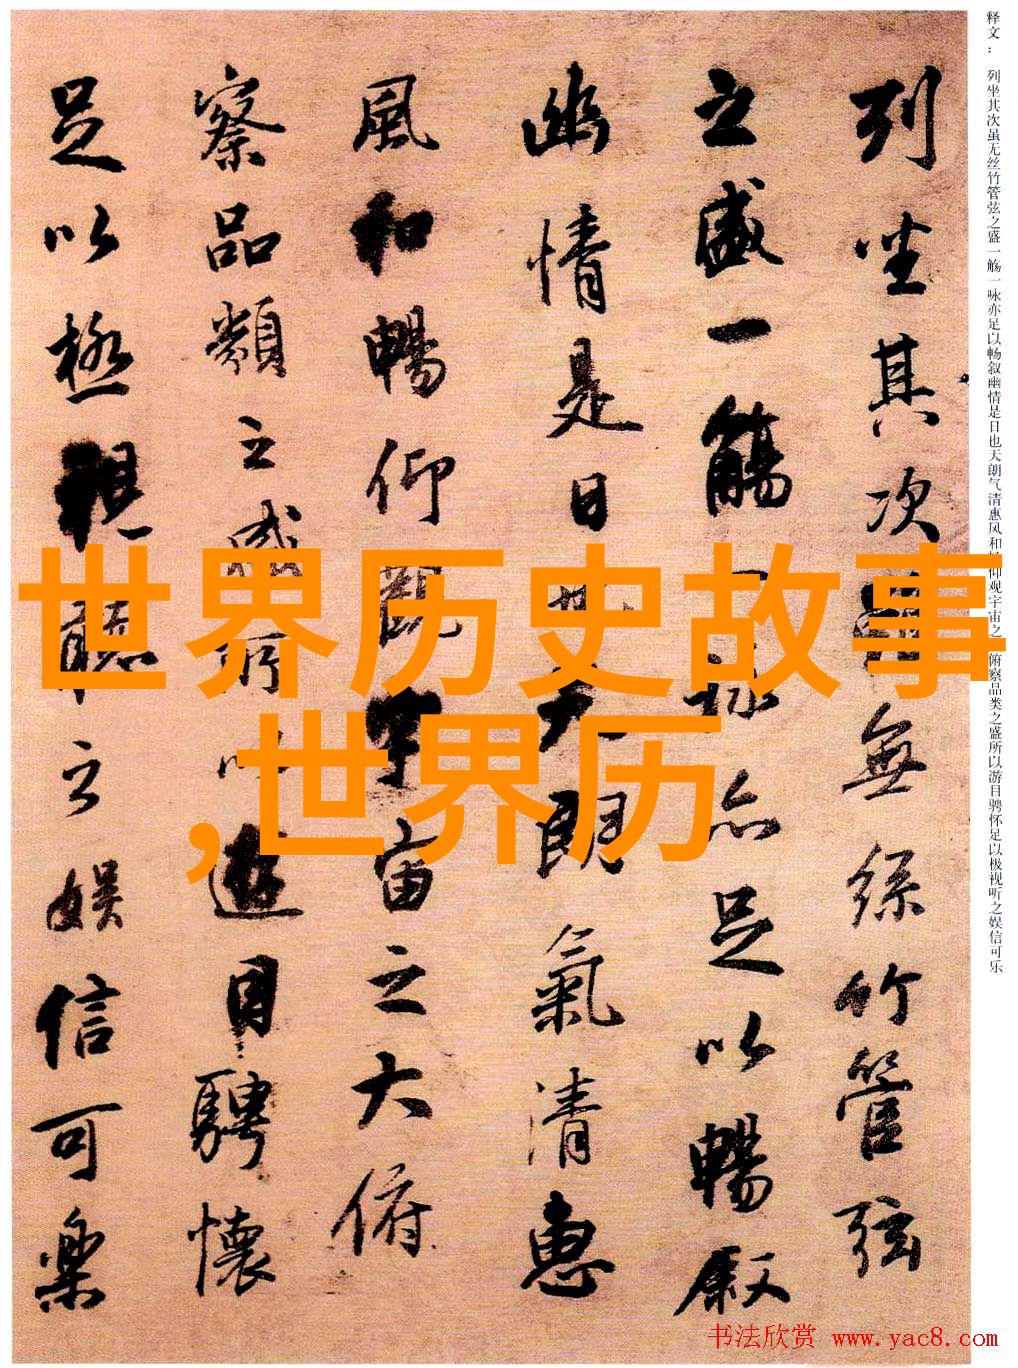 释文： 列坐其次虽无丝竹管弦之盛一觞一咏亦足以畅叙幽情是日也天朗气清惠风和畅仰观宇宙之俯察品类之盛所以游目骋怀足以极视听之娱信可乐
列坐其次雖無絲竹管弦
之盛一觴一詠亦足以暢叙
幽情是日也天朗氣清惠
風和暢仰觀宇宙之大俯
察品類之盛所以遊目騁懷
足以極視聽之娛信可樂
世界历史故事
,世界历
书法欣赏 www.yac8.com